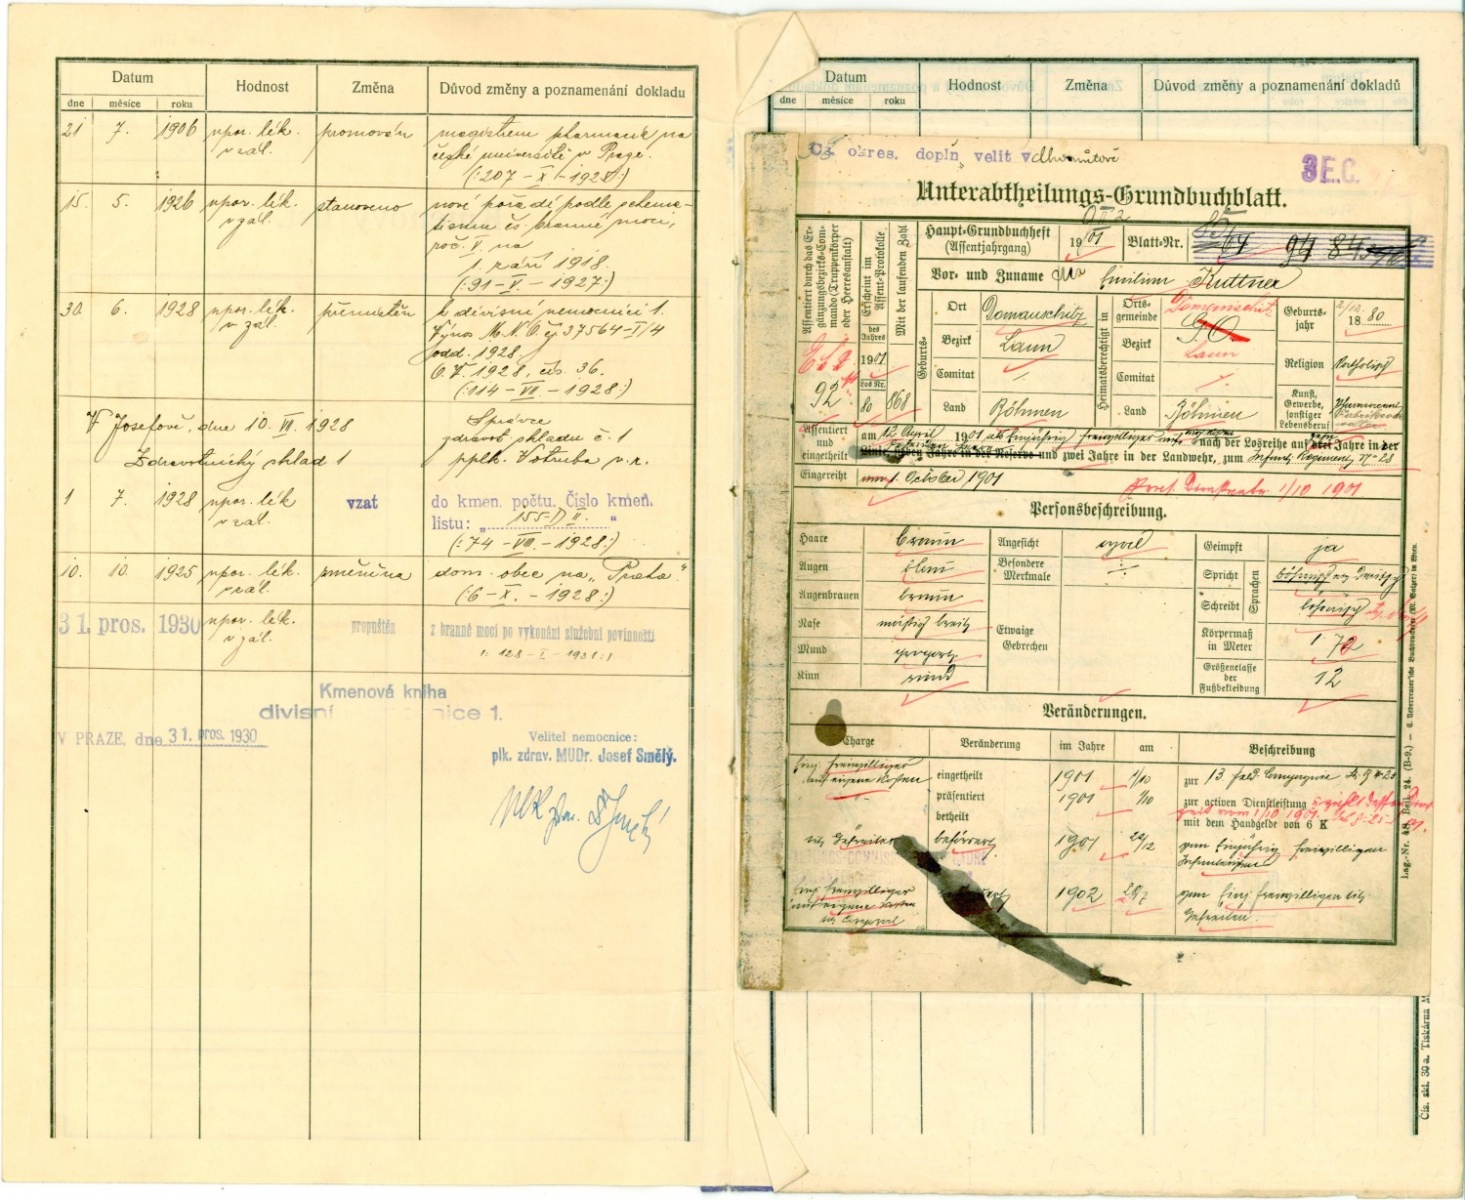 Datum
Hodnost
Změna
Důvod změny a poznamenání dokladu
dne
měsíce
roku
21 7. 1906 npor. lék. promován magistrem pharmacie na
v zál. české universitě v Praze.
(:207 - X - 1928:)
15. 5. 1926 npor. lék. stanoveno nové pořadí podle schema-
v zál. tismu čs. branné moci,
roč. V. na
1. září 1918.
(:91 - V. - 1927:)
30. 6. 1928 npor. lék. přemístěn k divisní nemocnici 1.
v zál. Výnos M.N.O. čj 37564-II/4
odd. 1928
O.V. 1928, čís. 36.
(:114 - VII - 1928:)
V Josefově, dne 10. VII. 1928 Správce
zdravot. skladu č. 1
Zdravotnický sklad 1 pplk. Votruba v.r.
1 7. 1928 npor. lék vzat do kmen. počtu. Číslo kmen.
v zál. listu: „ 155-D II. "
(:74 - VIII. - 1928:)
10. 10. 1925 npor. lék. změněna dom. obec na „Praha."
v zál. (:6 - X. - 1928:)
31. pros. 1930 npor. lék. propuštěn z branné moci po vykonání služební povinnosti
v zál. (: 128 - I - 1931:)
Kmenová kniha
divisní nemocnice 1.
V PRAZE, dne 31. pros. 1930
Velitel nemocnice:
plk. zdrav. MUDr. Josef Smělý.
Datum
Hodnost
Změna
Důvod změny a poznamenání dokladů
dne
měsíce
roku
okres. dopln. velit v Chomutově
3E.C.
Unterabtheilungs-Grundbuchblatt.
Haupt-Grundbuchheft
(Assentjahrgang)
1901
Blatt-Nr.
94 84
Vor- und Zuname
Emilian Kuttner
Assentiert durch das Er-
gänzungsbezirks-Com-
mando (Truppenkörper
oder Heeresanstalt)
Erscheint im
Assent-Protokolle
Mit der laufenden Zahl
des
Jahres
1901
Los Nr.
80
868
92
Geburts-
Ort Domauschitz
Bezirk Laun
Comitat
Land Böhmen
Heimatsberechtigt in
Orts-
gemeinde Domauschitz
Bezirk Laun
Comitat
Land Böhmen
Geburts-
jahr 1880
Religion katholisch
Kunst,
Gewerbe,
sonstiger
Lebensberuf
Assentiert
und
eingetheilt
am 12 April 1901 als Einjährig freiwilliger nach der Losreihe auf drei Jahre in der
Linie, sieben Jahre in der Reserve und zwei Jahre in der Landwehr, zum Infant Regiment No 28
Eingereiht am 1. October 1901
1/10 1901
Personsbeschreibung.
Haare braun
Augen blau
Augenbrauen braun
Nase mäßig breit
Mund
Kinn rund
Angesicht oval
Besondere
Merkmale
Etwaige
Gebrechen
Geimpft ja
Spricht böhmisch
Schreibt böhmisch
Sprachen
Körpermaß
in Meter
1.72
Größenclasse
der
Fußbekleidung
12
Veränderungen.
Charge
Veränderung
im Jahre
am
Beschreibung
Einj. freiwilliger
auf eigene Kosten
eingetheilt 1901 1/10 zur 13 Feld Compagnie
präsentiert 1901 1/10 zur activen Dienstleistung
betheilt mit dem Handgelde von 6 K
tit. Gefreiter befördert 1901 22/12 zum Einjährig freiwilligen
Einj. freiwilliger 1902 zum Einj. freiwilligen tit.
auf eigene Kosten Gefreiten.
tit. Corporal
Lag.-Nr. 48. Beil. 24. (B-9.)
Čís. skl. 30a. Tiskárna M